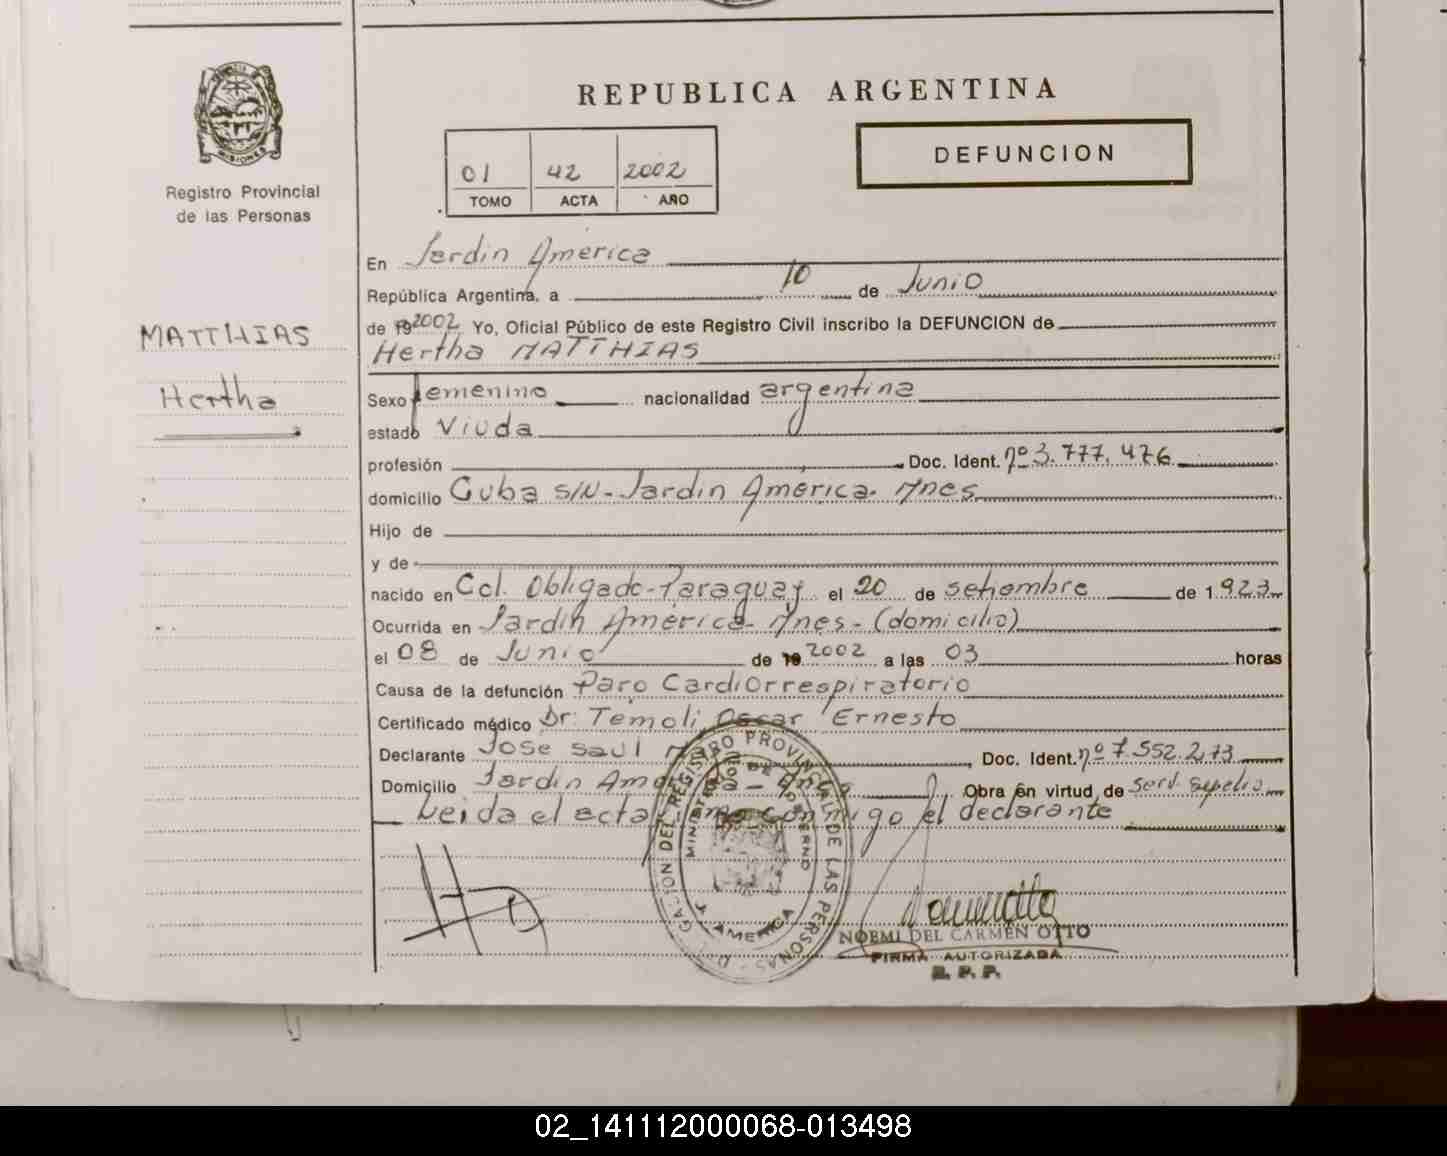 REPUBLICA ARGENTINA
DEFUNCION
01 42 2002
TOMO ACTA AÑO
MISIONES
Registro Provincial
de las Personas
MATTHIAS
Hertha
En Jardin America
República Argentina, a 10 de Junio
de 192002 Yo, Oficial Público de este Registro Civil inscribo la DEFUNCION de
Hertha MATTHIAS
Sexo femenino nacionalidad argentina
estado Viuda
profesión Doc. Ident. nº 3.777.476
domicilio Cuba S/N - Jardin América - Mnes
Hijo de
y de
nacido en Col. Obligado - Paraguay el 20 de setiembre de 1923
Ocurrida en Jardin América - Mnes - (domicilio)
el 08 de Junio de 192002 a las 03 horas
Causa de la defunción Paro Cardiorrespiratorio
Certificado médico Dr: Temoli Oscar Ernesto
Declarante Jose Saul Doc. Ident. nº 7.552.273
Domicilio Jardin Obra en virtud de serv. sepelio
Leida el acta conmigo el declarante
DEL REGISTRO PROVINCIAL DE LAS PERSONAS
MINISTERIO DE GOBIERNO
J. AMERICA
NOEMI DEL CARMEN OTTO
FIRMA AUTORIZADA
R. P. P.
02_141112000068-013498